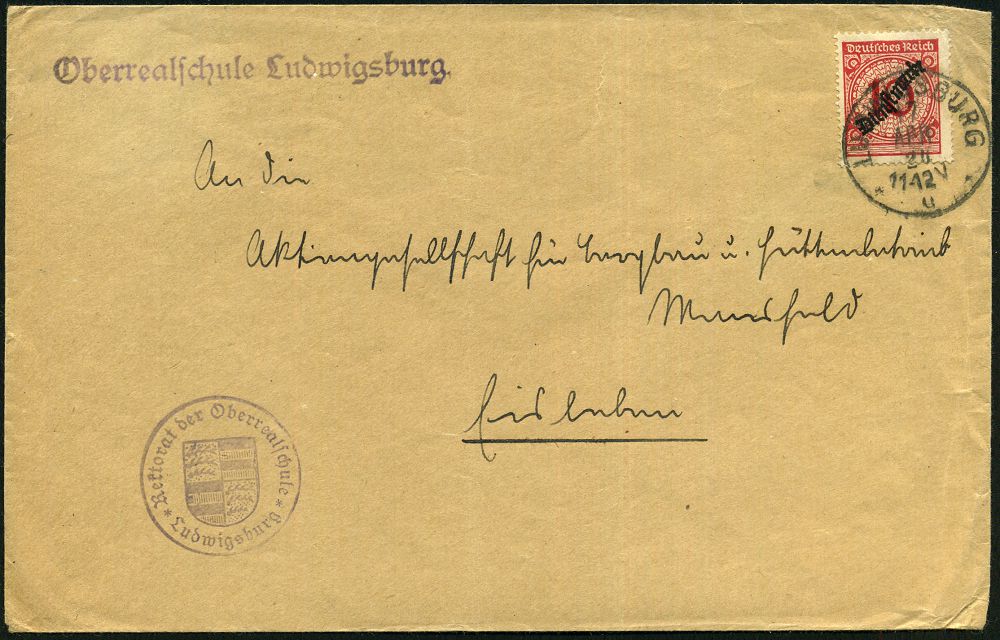 Oberrealschule Ludwigsburg.
Deutsches Reich
10
Dienstmarke
LUDWIGSBURG
11-12 V
An die
Aktiengesellschaft für Bergbau u. Hüttenbetrieb
Mansfeld
Eisleben
* Rektorat der Oberrealschule *
Ludwigsburg